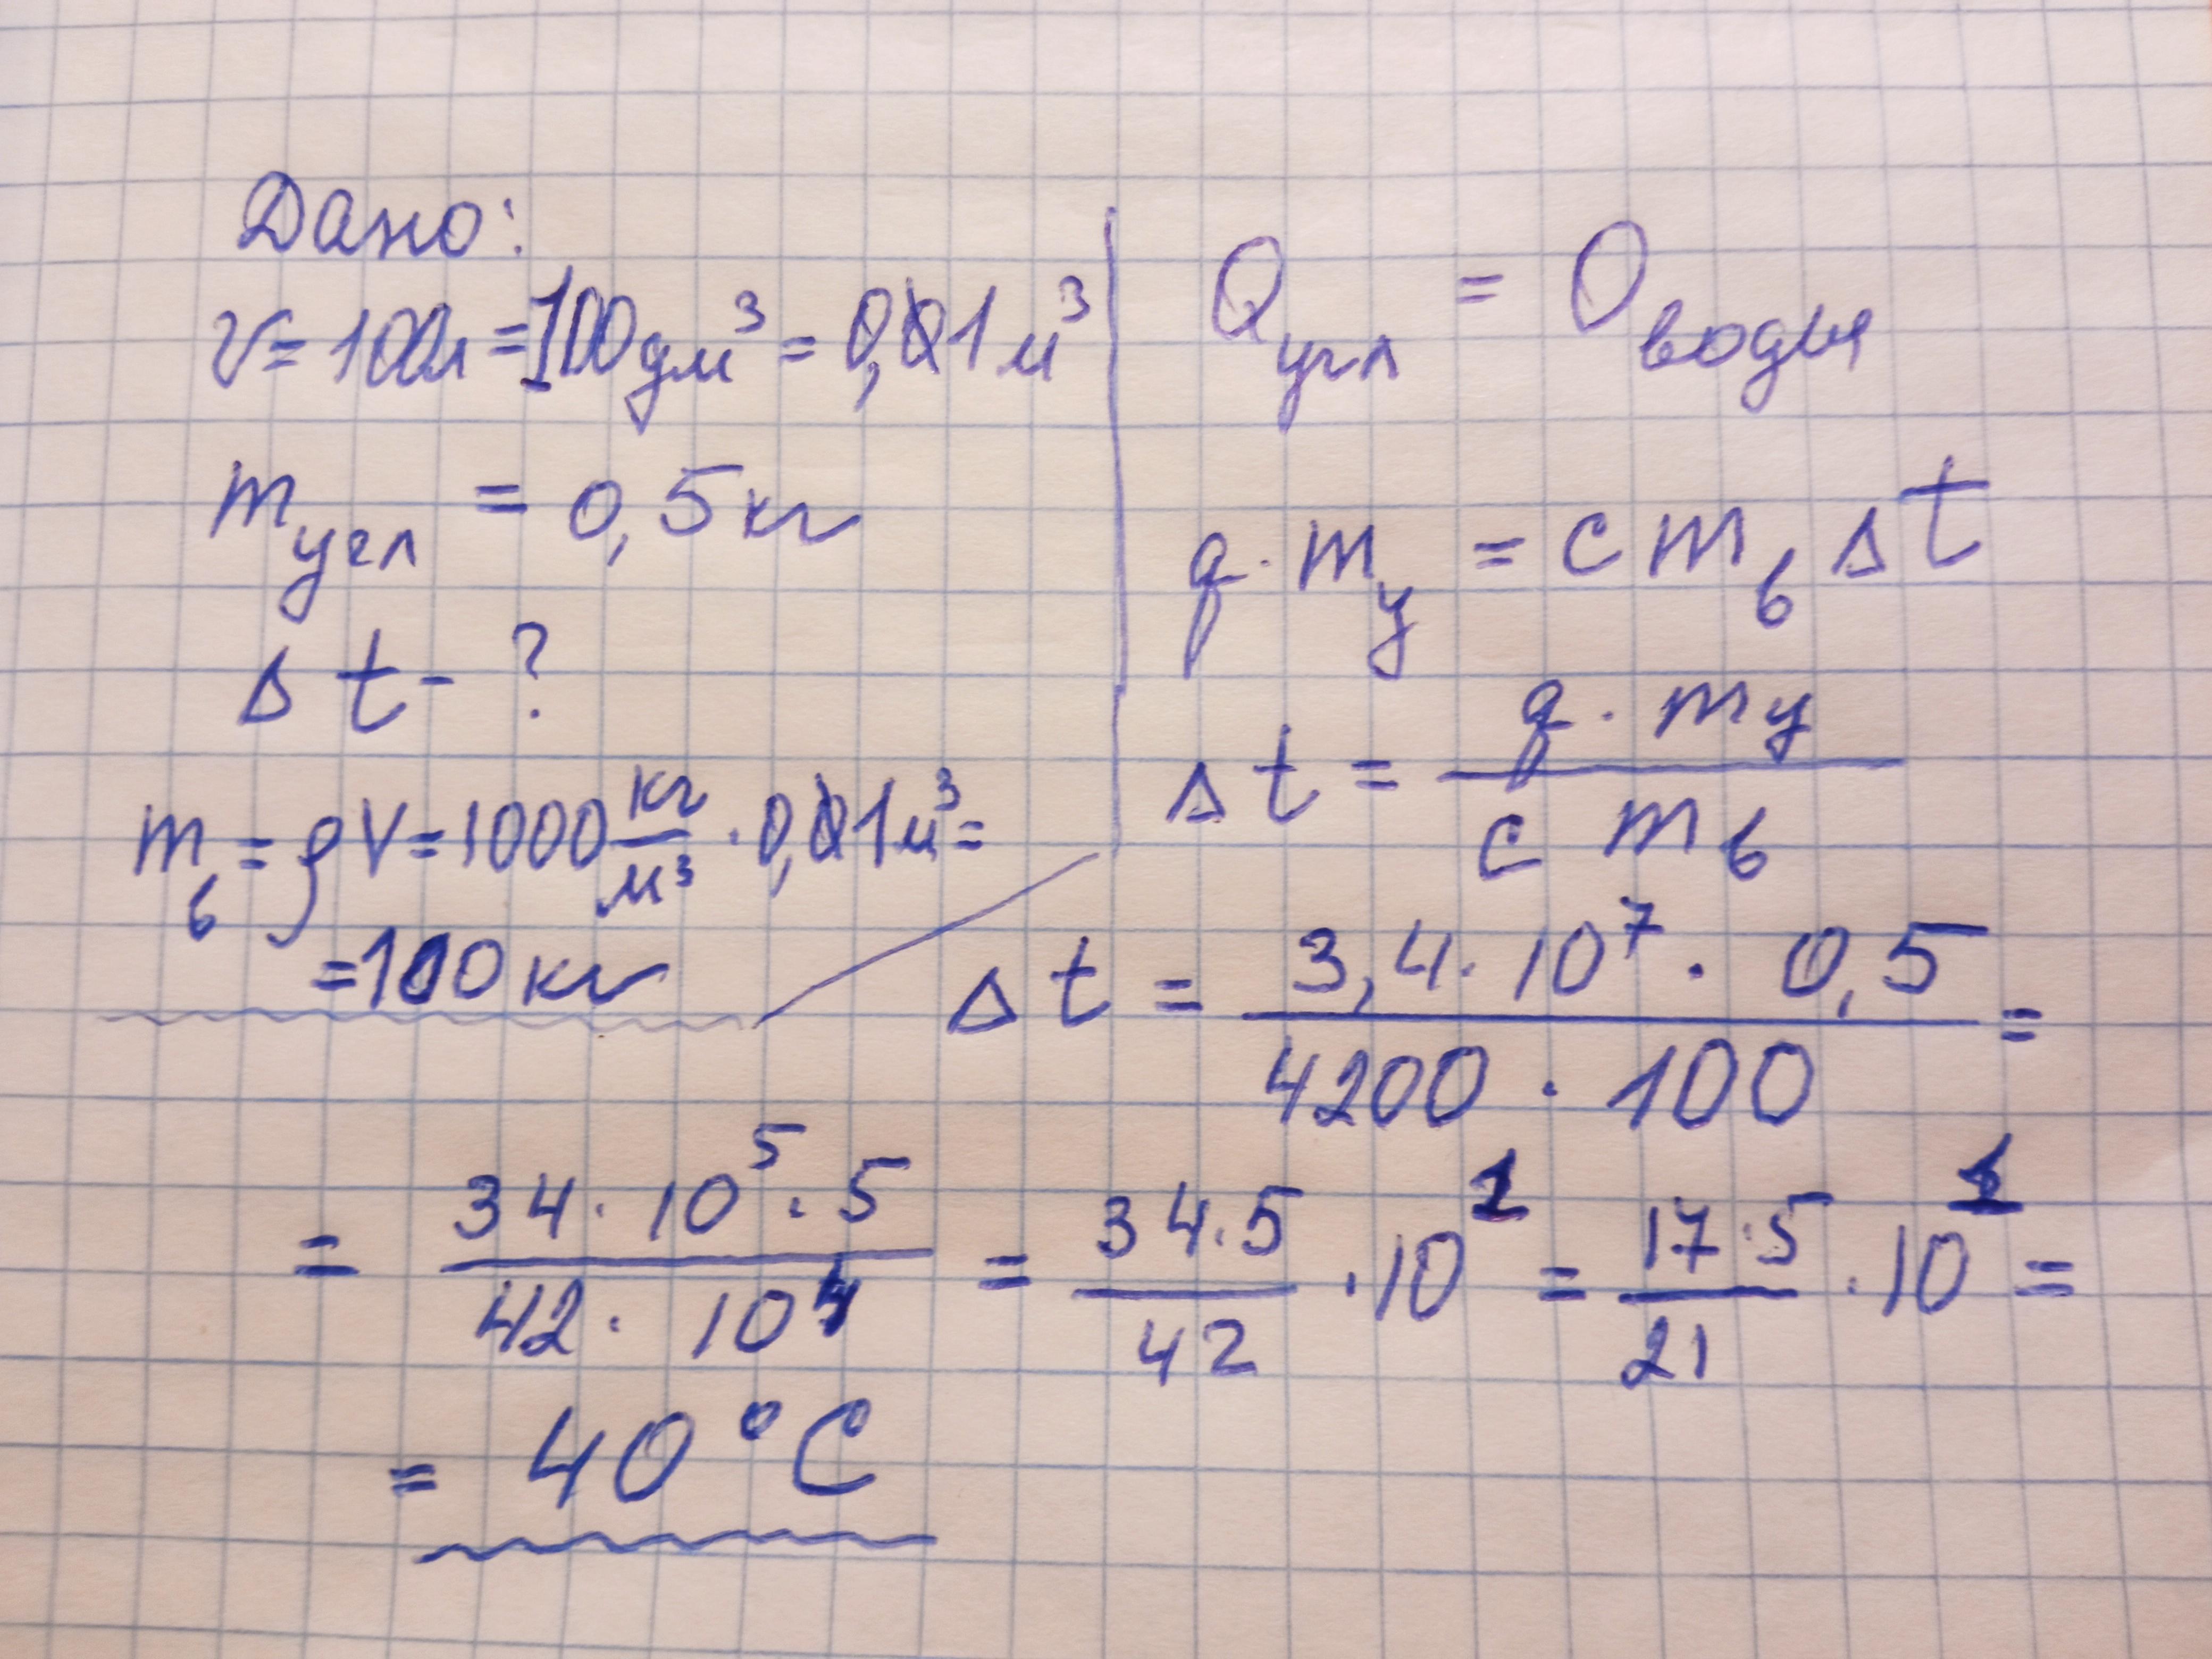 Дано:
V = 100л = 100дм³ = 0,1м³
m угл = 0,5кг
Δt - ?
m в = ρV = 1000 кг/м³ · 0,1м³ =
= 100кг
Q угл = Q воды
q · m у = c m в Δt
Δt = q · m у / c m в
Δt = 3,4 · 10⁷ · 0,5 / 4200 · 100 =
= 34 · 10⁵ · 5 / 42 · 10⁴ = 34 · 5 / 42 · 10¹ = 17 · 5 / 21 · 10¹ =
= 40°C